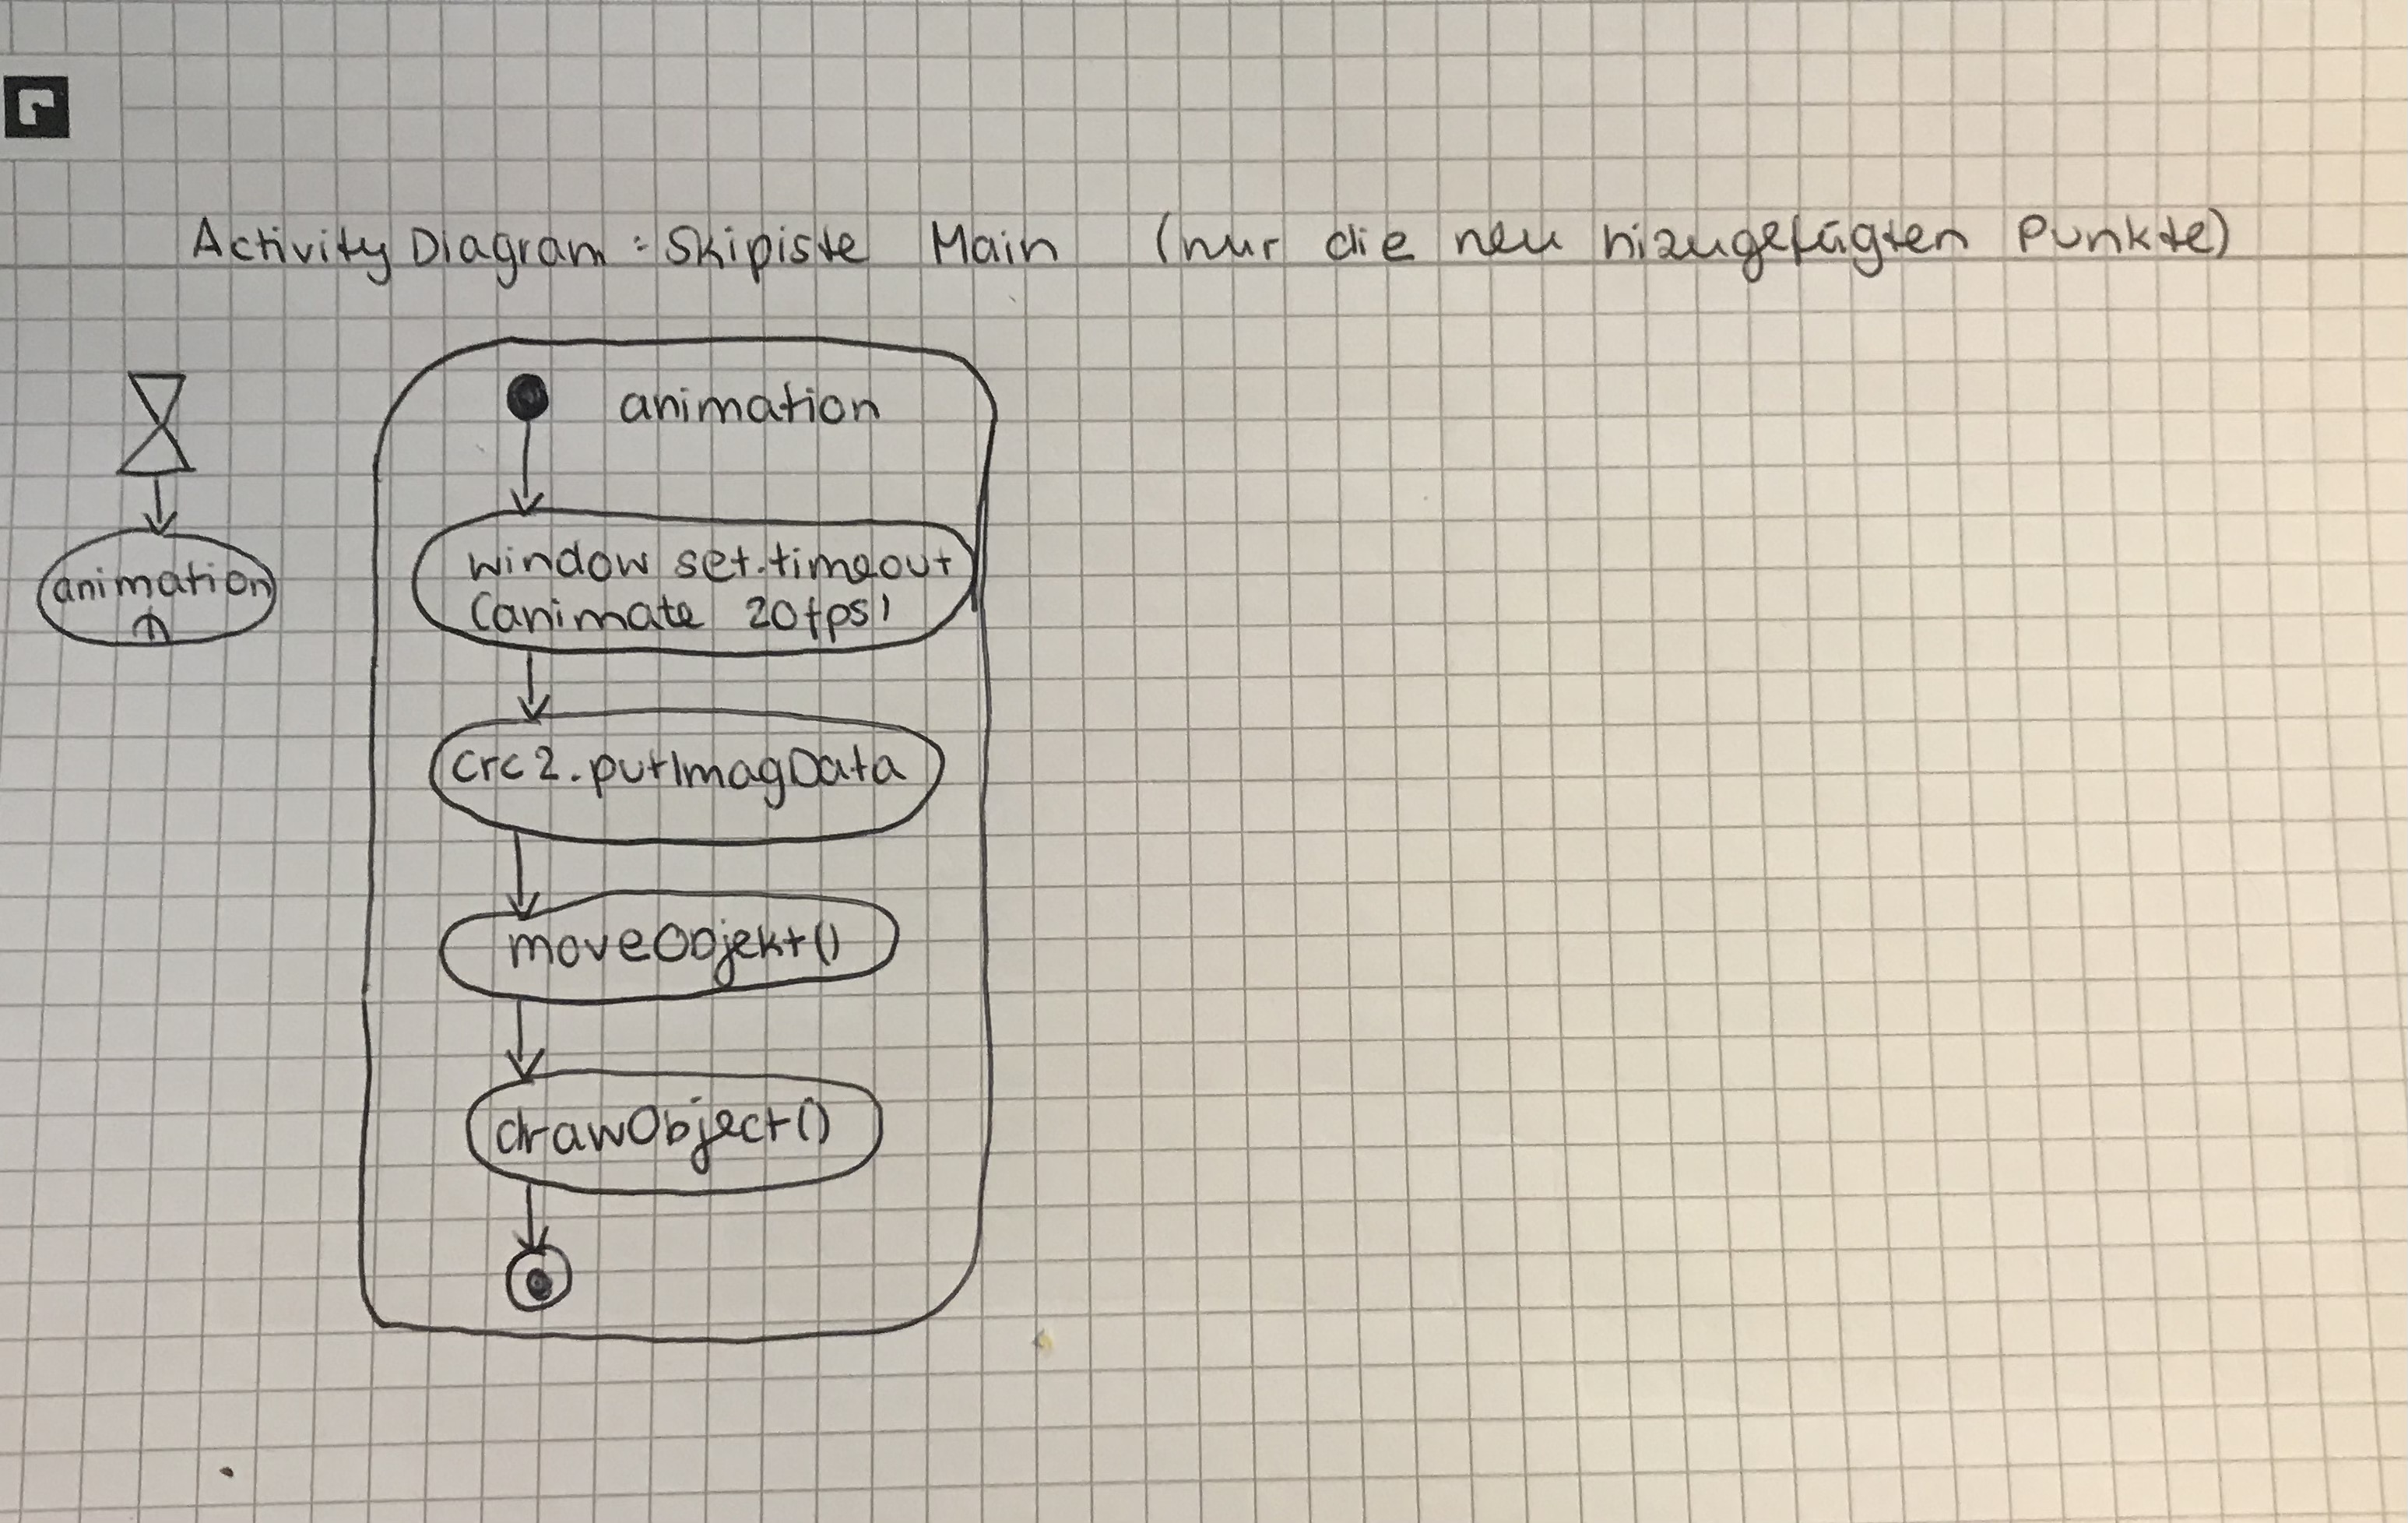 Activity Diagram : Skipiste Main (nur die neu hizugefügten Punkte)
animation
animation
window set.timeout
(animate 20fps)
crc2.putImagData
moveObjekt()
drawObject()